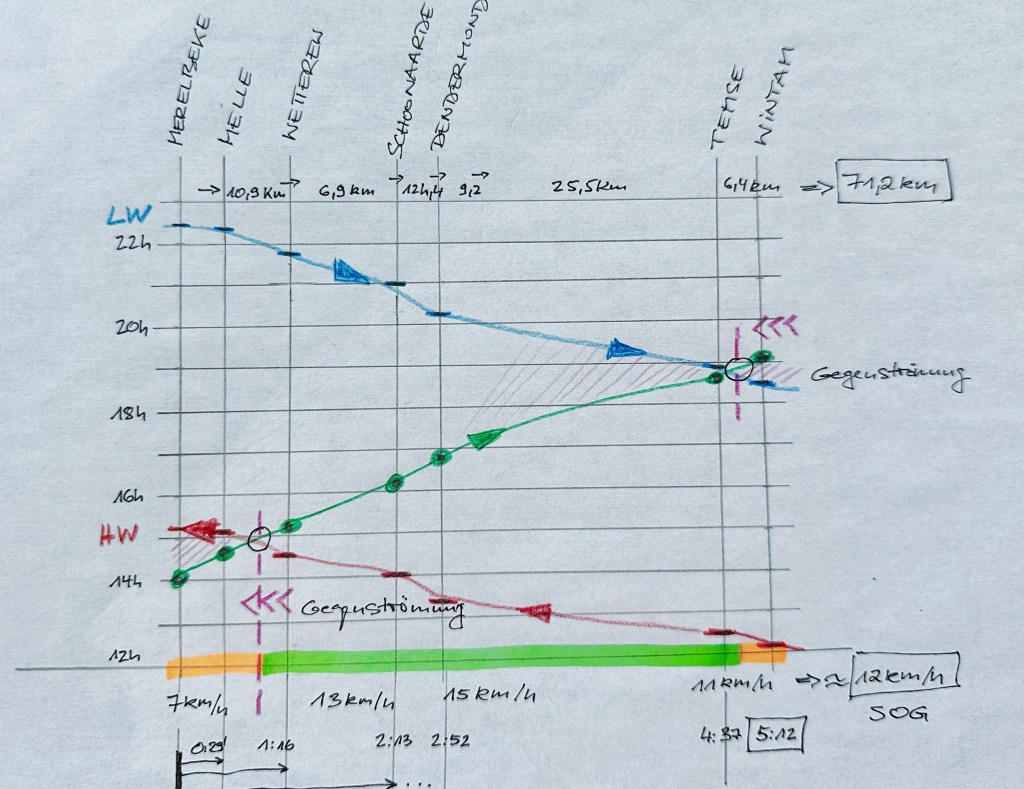 MERELBEKE
MELLE
WETTEREN
SCHOONAARDE
DENDERMOND
TEMSE
WINTAM
10,9 Km 6,9 km 12,4 9,2 25,5km 6,4km => 71,2km
LW
22h
20h
<<<
Gegenströmung
18h
16h
HW
14h
<<< Gegenströmung
12h
7km/h 13km/h 15km/h 11km/h => ≈ 12km/h
SOG
0:29' 1:16 2:13 2:52 4:37 5:12
...